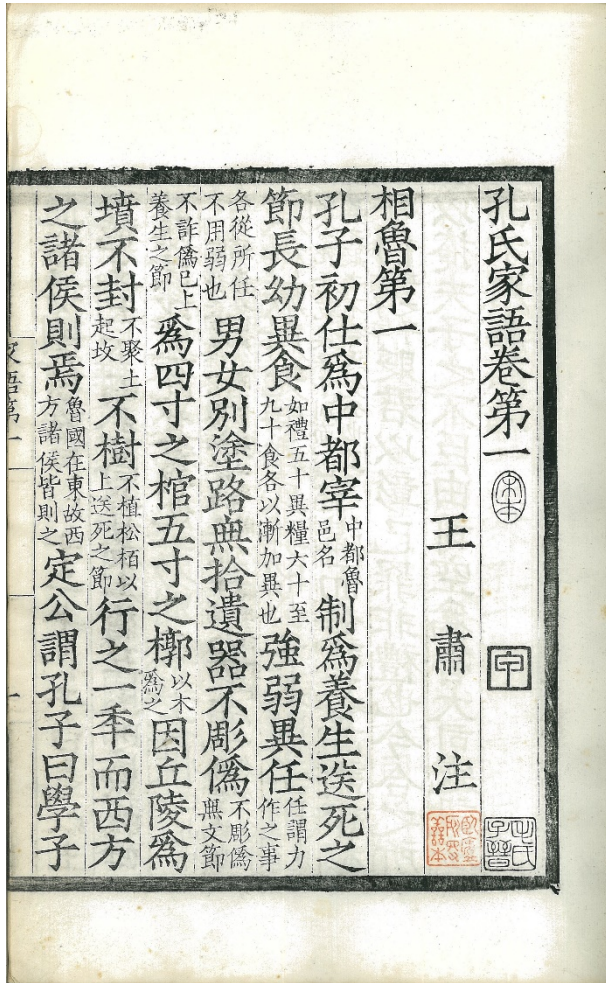 孔氏家語卷第一
宋本
甲
毛氏子晉
王肅注
相魯第一
孔子初仕爲中都宰中都魯邑名制爲養生送死之
節長幼異食如禮五十異糧六十至九十食各以漸加異也強弱異任任謂力作之事
各從所任不用弱也男女別塗路無拾遺器不彫僞不彫僞無文節
不詐僞已上養生之節爲四寸之棺五寸之槨以木爲之因丘陵爲
墳不封不聚土起坟不樹不植松栢以上送死之節行之一秊而西方
之諸侯則焉魯國在東故西方諸侯皆則之定公謂孔子曰學子
家語第一
一